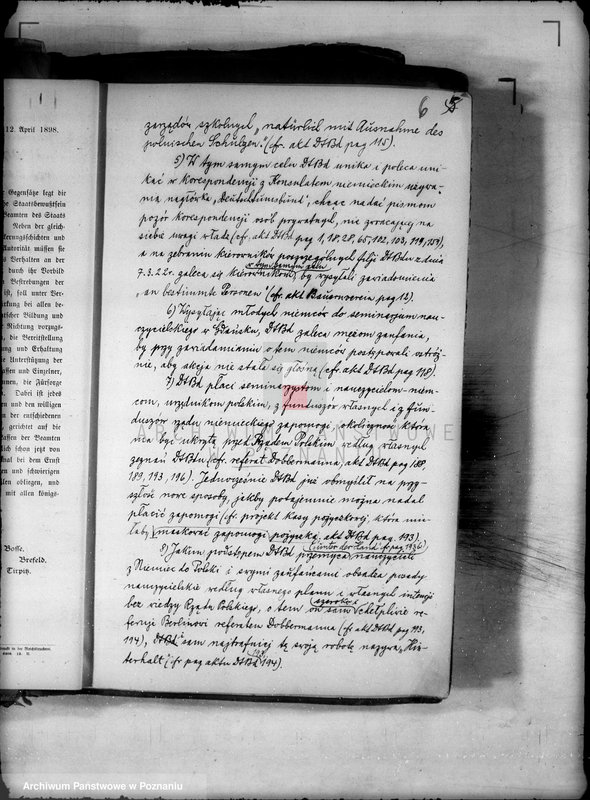 6 5
12. April 1898.
Gegensätze legt die
Staatsbewußtsein
Beamten des Staats
Reden der gleich-
Verhalten an der
durch ihr Vorbild
Bestrebungen der
ist, soll unter Ver-
Bildung und
und Richtung vorzugs-
die Bereitstellung
und Erhaltung
Unterstützung der
und Einzelner,
die Fürsorge
Dabei ist jedes
und den
der entschiedenen
gerichtet auf die
der Beamten
schon jetzt von
bei dem Ernst
und schwierigen
obliegen, und
mit allen königs-
Bosse.
Brefeld.
Tirpitz.
zarządów szkolnych „natürlich mit Ausnahme des
polnischen Schulzen." (cfr. akt DtBd pag 115).
5) W tym samym celu DtBd unika i poleca uni-
kać w korespondencji z Konsulatem niemieckim używa-
nia nagłówka „Deutschtumsbund", chcąc nadać pismom
pozór korespondencji osób prywatnych, nie zwracającej na
siebie uwagi władz (cfr. akt DtBd pag 1, 18, 28, 65, 102, 103, 119, 159),
a na zebraniu kierowników poszczególnych filji DtBdu z dnia
w tym samym celu
7.3.22r. zaleca się kierownikom by wysyłali zawiadomienia
„an bestimmte Personen" (cfr. akt Bauernverein pag 12).
6) Wysyłając młodych niemców do seminarjum nau-
czycielskiego w Gdańsku, DtBd zaleca mężom zaufania,
by przy zawiadamianiu o tem niemców postępowali ostróż-
nie, aby akcja nie stała się głośną (cfr. akt DtBd pag 118).
7) DtBd płaci seminarzystom i nauczycielom-niem-
com, urzędnikom polskim, z funduszów własnych a z fun-
duszów rządu niemieckiego zapomogi, okoliczność, która
ma być ukrytą przed Rządem Polskim według własnych
zeznań DtBdu (cfr. referat Dobbermanna, akt DtBd pag 188,
189, 193, 196). Jednocześnie DtBd już obmyślił na przy-
szłość nowe sposoby, jakby potajemnie można nadal
płacić zapomogi (cfr. projekt Kasy pożyczkowej, która mia-
łaby maskować zapomogi pożyczką, akt DtBd pag. 193).
8) Jakim podstępem DtBd przemyca nauczycieli
z Niemiec do Polski i swymi zaufańcami obsadza posady
nauczycielskie według własnego planu i własnych intencji
bez wiedzy Rządu Polskiego, o tem on sam szeroko chełpliwie re-
feruje Berlinowi referatem Dobbermanna (cfr. akt DtBd pag 193,
194), DtBd sam najtrafniej tę swoją robotę nazywa „Hin-
terhalt" (cfr pag aktu DtBd 194).
ARCHIWUM PAŃSTWOWE
W POZNANIU
Archiwum Państwowe w Poznaniu